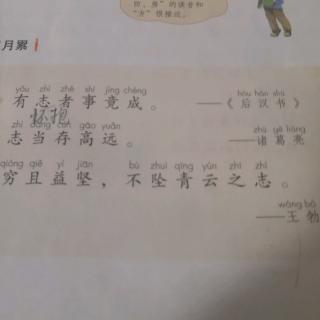 防、房”的读音和
“方”很接近。
月累
yǒu zhì zhě shì jìng chéng hòu hàn shū
有志者事竟成。——《后汉书》
怀抱
zhì dāng cún gāo yuǎn zhū gě liàng
志当存高远。——诸葛亮
qióng qiě yì jiān bù zhuì qīng yún zhī zhì
穷且益坚，不坠青云之志。
wáng bó
——王勃